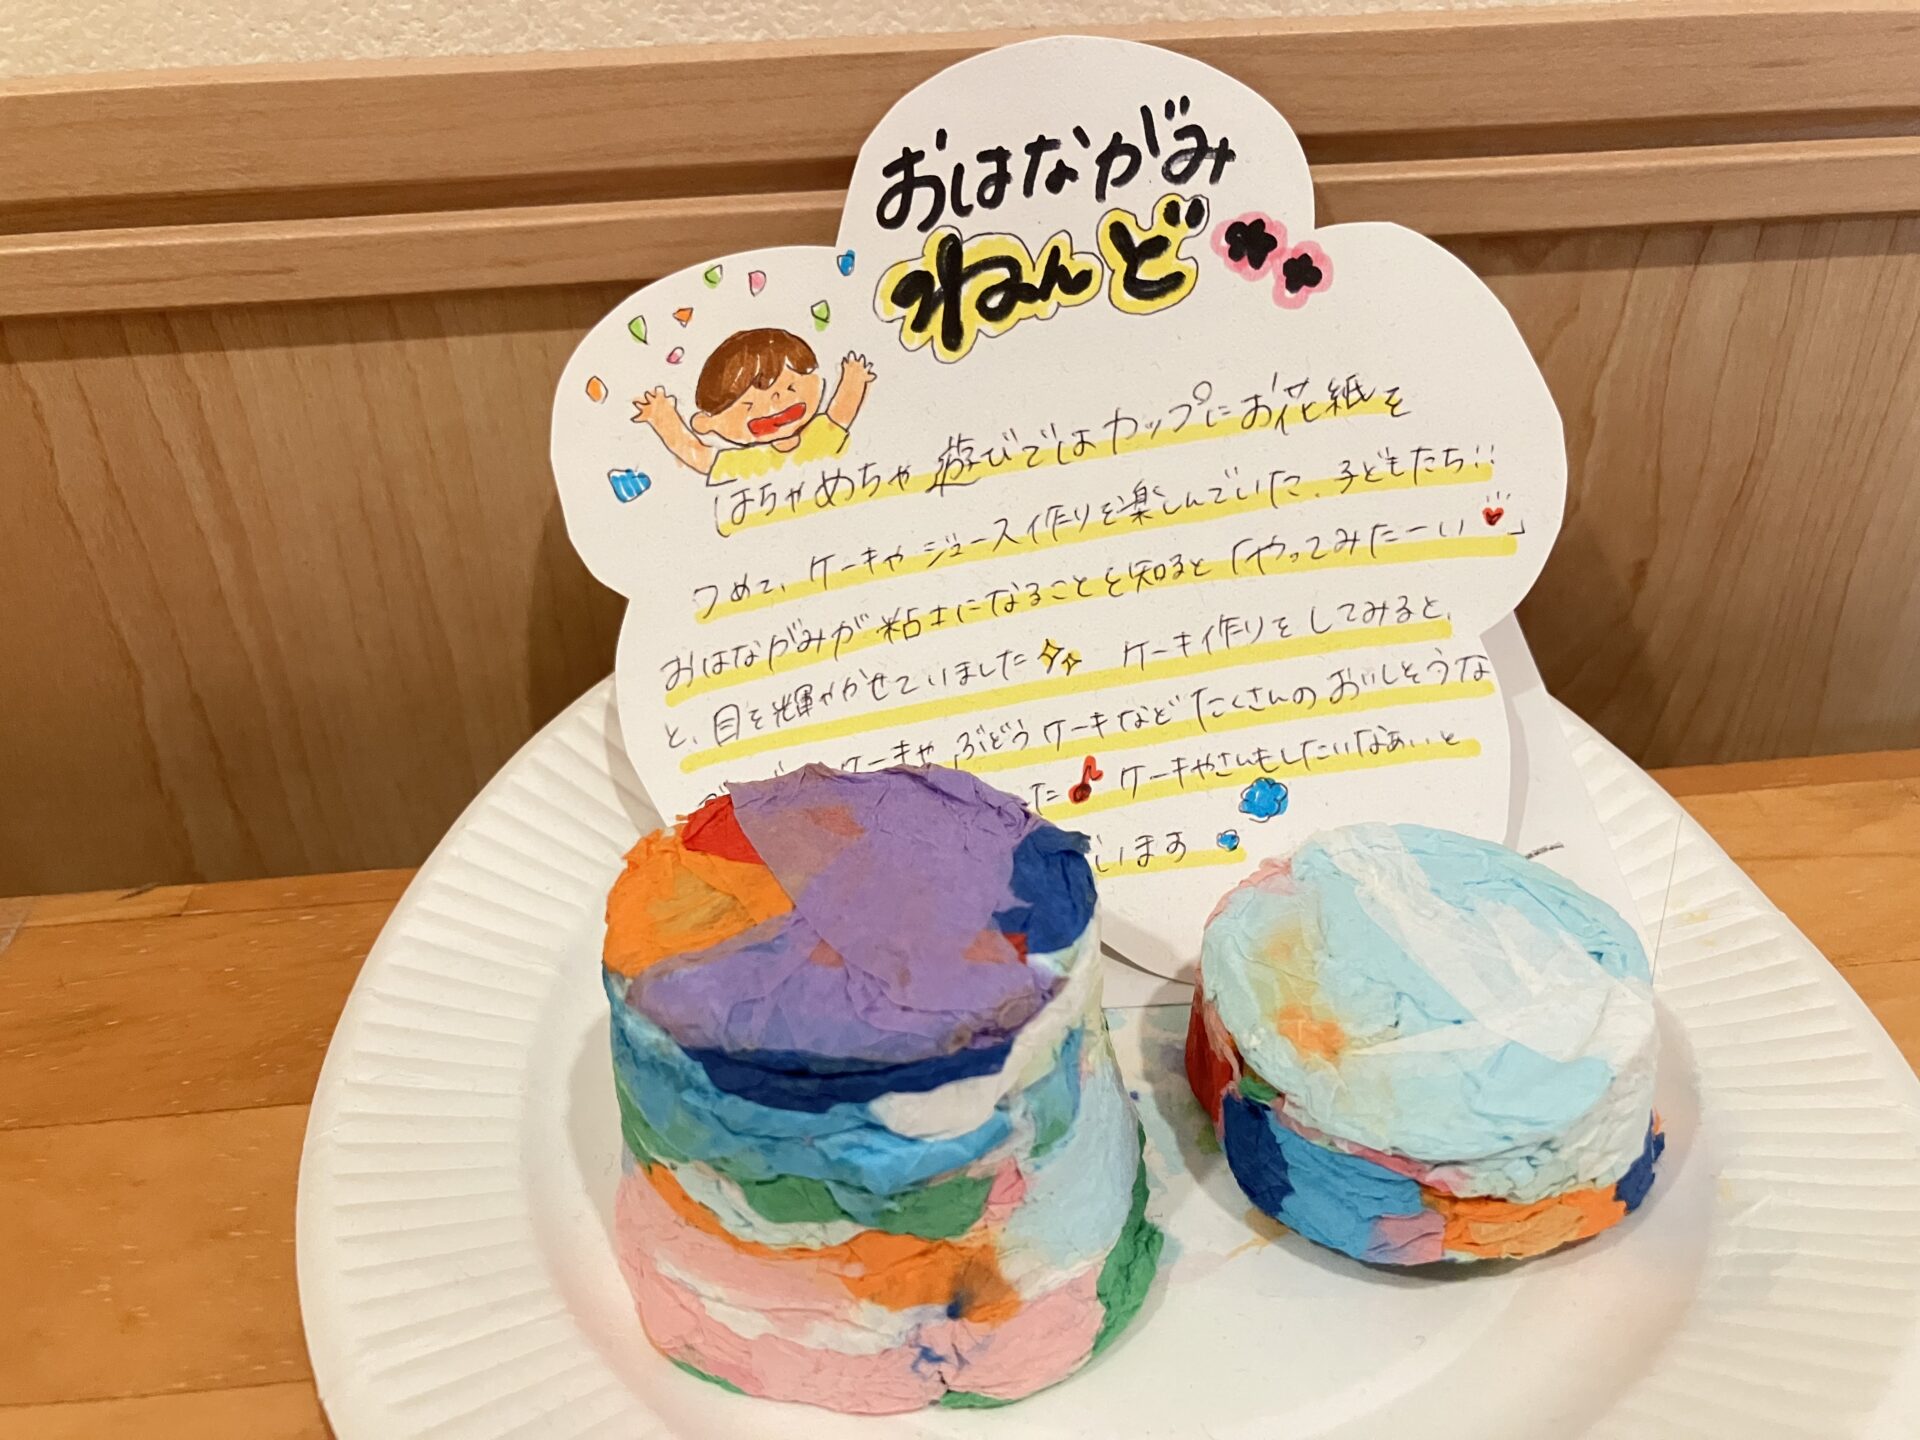 おはながみ
ねんど
はちゃめちゃ遊びではカップにお花紙を
つめて、ケーキやジュース作りを楽しんでいた、子どもたち!!
おはながみが粘土になることを知ると「やってみたーい」
と、目を輝やかせていました ケーキ作りをしてみると、
ケーキやぶどうケーキなどたくさんのおいしそうな
た♪ ケーキやさんもしたいなあいと
います